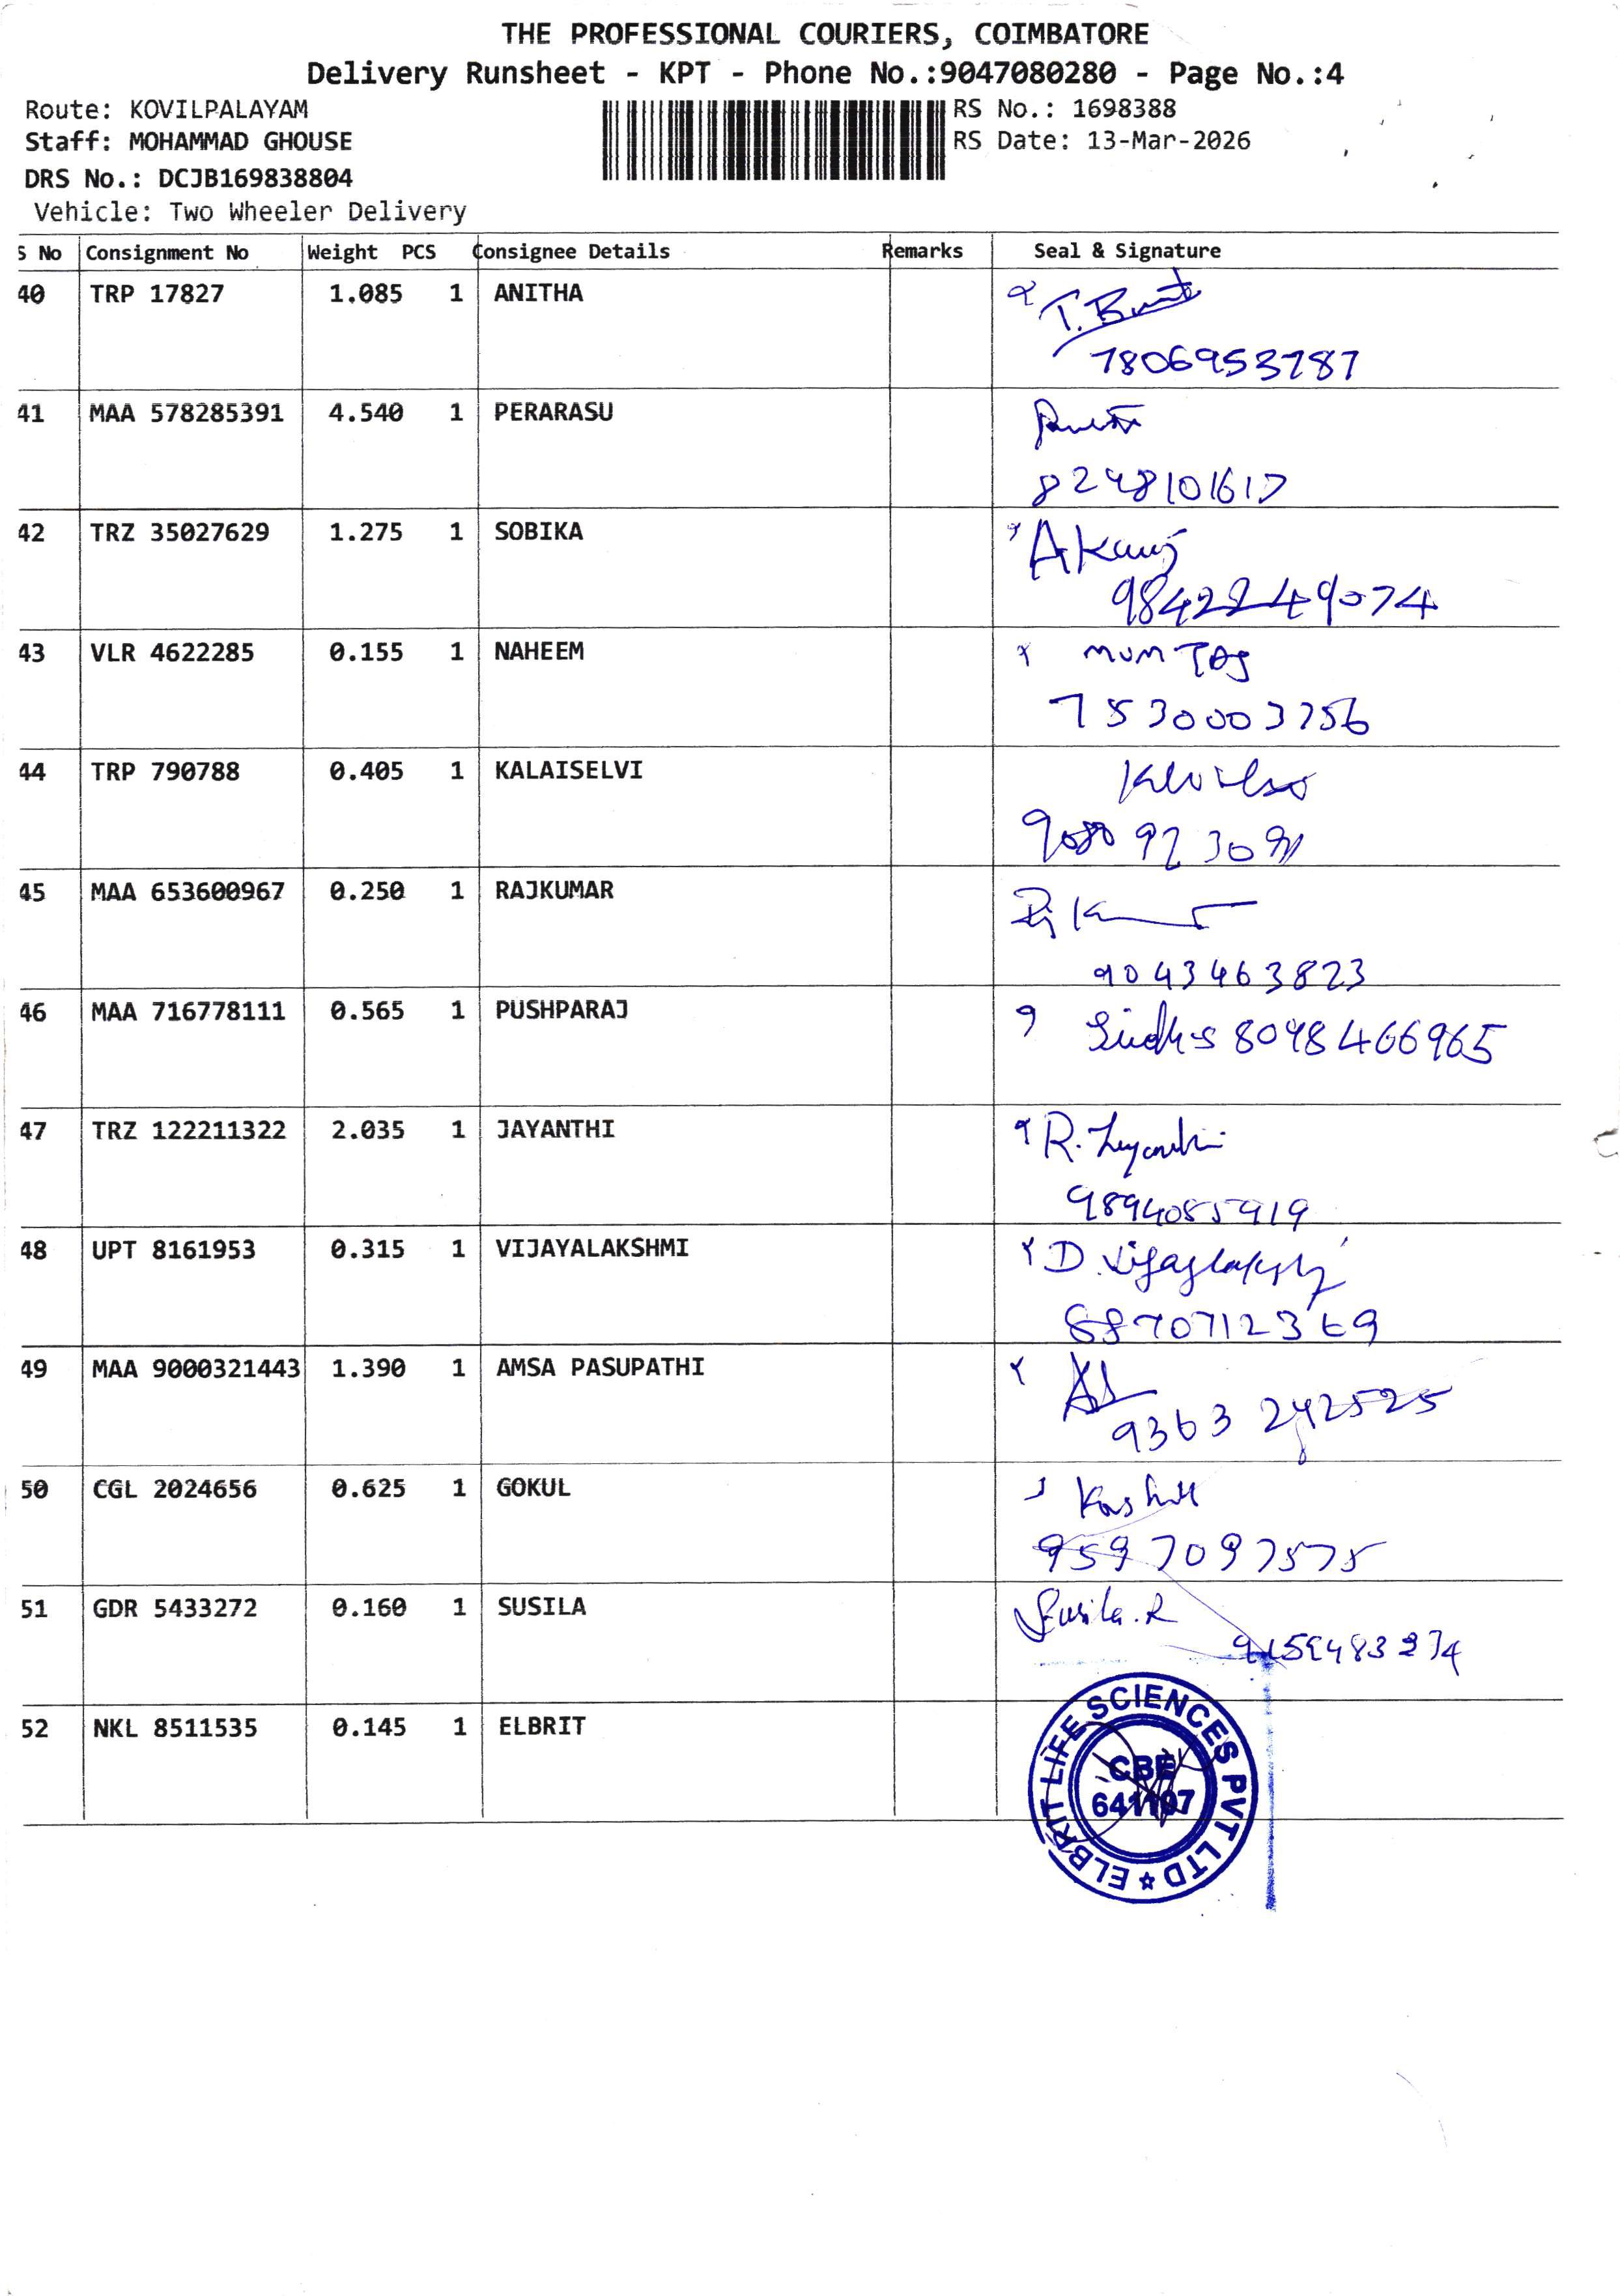 THE PROFESSIONAL COURIERS, COIMBATORE
Delivery Runsheet - KPT - Phone No.:9047080280 - Page No.:4
Route: KOVILPALAYAM
RS No.: 1698388
Staff: MOHAMMAD GHOUSE
RS Date: 13-Mar-2026
DRS No.: DCJB169838804
Vehicle: Two Wheeler Delivery
S No Consignment No Weight PCS Consignee Details Remarks Seal & Signature
40 TRP 17827 1.085 1 ANITHA
7806953787
41 MAA 578285391 4.540 1 PERARASU
8248101617
42 TRZ 35027629 1.275 1 SOBIKA
9842249074
43 VLR 4622285 0.155 1 NAHEEM
MUMTAJ
7530003756
44 TRP 790788 0.405 1 KALAISELVI
45 MAA 653600967 0.250 1 RAJKUMAR
9043463823
46 MAA 716778111 0.565 1 PUSHPARAJ
8098466965
47 TRZ 122211322 2.035 1 JAYANTHI
R.
9894085919
48 UPT 8161953 0.315 1 VIJAYALAKSHMI
D.
8870712369
49 MAA 9000321443 1.390 1 AMSA PASUPATHI
9363242525
50 CGL 2024656 0.625 1 GOKUL
9597097575
51 GDR 5433272 0.160 1 SUSILA
Susila.R
52 NKL 8511535 0.145 1 ELBRIT
ELBRIT LIFE SCIENCES PVT LTD
CBE
641107